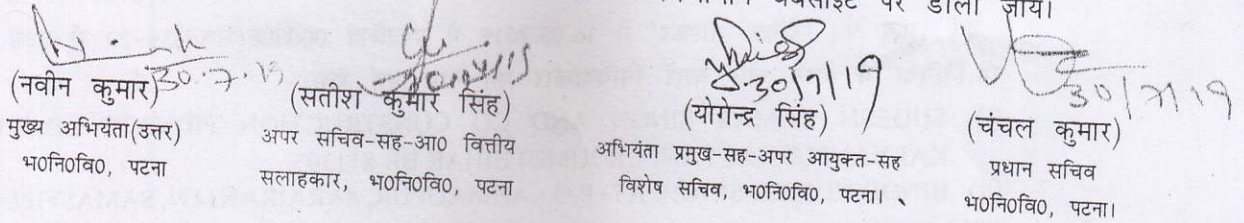 वेबसाइट पर डाला जाय।
30.7.19
30/7/19
30/7/19
(नवीन कुमार)
मुख्य अभियंता(उत्तर)
भ०नि०वि०, पटना
(सतीश कुमार सिंह)
अपर सचिव-सह-आ० वित्तीय
सलाहकार, भ०नि०वि०, पटना
(योगेन्द्र सिंह)
अभियंता प्रमुख-सह-अपर आयुक्त-सह
विशेष सचिव, भ०नि०वि०, पटना।
(चंचल कुमार)
प्रधान सचिव
भ०नि०वि०, पटना।